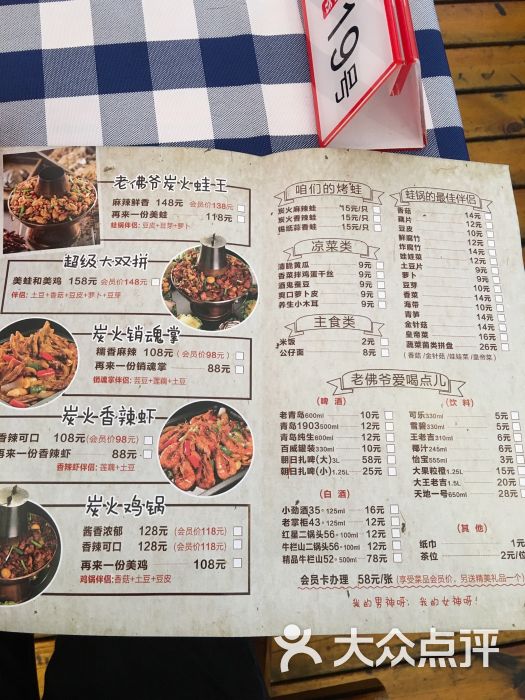 19号
老佛爷炭火蛙王
麻辣鲜香 148元 会员价138元
再来一份美蛙 118元
蛙锅伴侣：豆皮+豆芽+萝卜
超级大双拼
美蛙和美鸡 158元 会员价148元
伴侣：土豆+香菇+豆皮+萝卜+豆芽
炭火销魂掌
糯香麻辣 108元（会员价98元）
再来一份销魂掌 88元
销魂掌伴侣：芸豆+莲藕+土豆
炭火香辣虾
香辣可口 108元(会员价98元)
再来一份香辣虾 88元
香辣虾伴侣：莲藕+土豆
炭火鸡锅
酱香浓郁 128元（会员价118元）
香辣可口 128元（会员价118元）
再来一份美鸡 108元
鸡锅伴侣：香菇+土豆+豆皮
咱们的烤蛙
炭火麻辣蛙 15元/只
炭火香辣蛙 15元/只
锡纸蒜香蛙 15元/只
凉菜类
清脆黄瓜 9元
香菜拌鸡蛋干丝 9元
酒鬼蚕豆 9元
爽口萝卜皮 9元
养生小木耳 9元
主食类
米饭 2元
公仔面 8元
蛙锅的最佳伴侣
香菇 14元
藕片 12元
豆皮 12元
鲜腐竹 12元
炸腐竹 12元
娃娃菜 12元
土豆片 9元
萝卜 9元
豆芽 9元
香菜 9元
海带 9元
青笋 14元
金针菇 14元
皇帝菜 14元
蔬菜菌类拼盘 26元
（香菇/金针菇/娃娃菜/皇帝菜）
老佛爷爱喝点儿
（啤 酒）
老青岛600ml 10元
青岛1903500ml 12元
青岛纯生600ml 12元
百威罐装330ml 10元
朝日扎啤(大)3L 58元
朝日扎啤(小)1.25L 25元
（白 酒）
小劲酒35·125ml 16元
老掌柜43·125ml 12元
红星二锅头56·100ml 12元
牛栏山二锅头56·100ml 12元
精品牛栏山52·500ml 78元
（饮 料）
可乐330ml 5元
雪碧330ml 5元
王老吉310ml 6元
椰汁245ml 6元
怡宝555ml 3元
大果粒橙1.25L 15元
大王老吉1.5L 15元
天地一号650ml 28元
（其 他）
纸巾 1元
茶位 2元/位
会员卡办理 58元/张（享受菜品会员价，另送精美礼品一个）
我的男神呀；我的女神呀！
大众点评